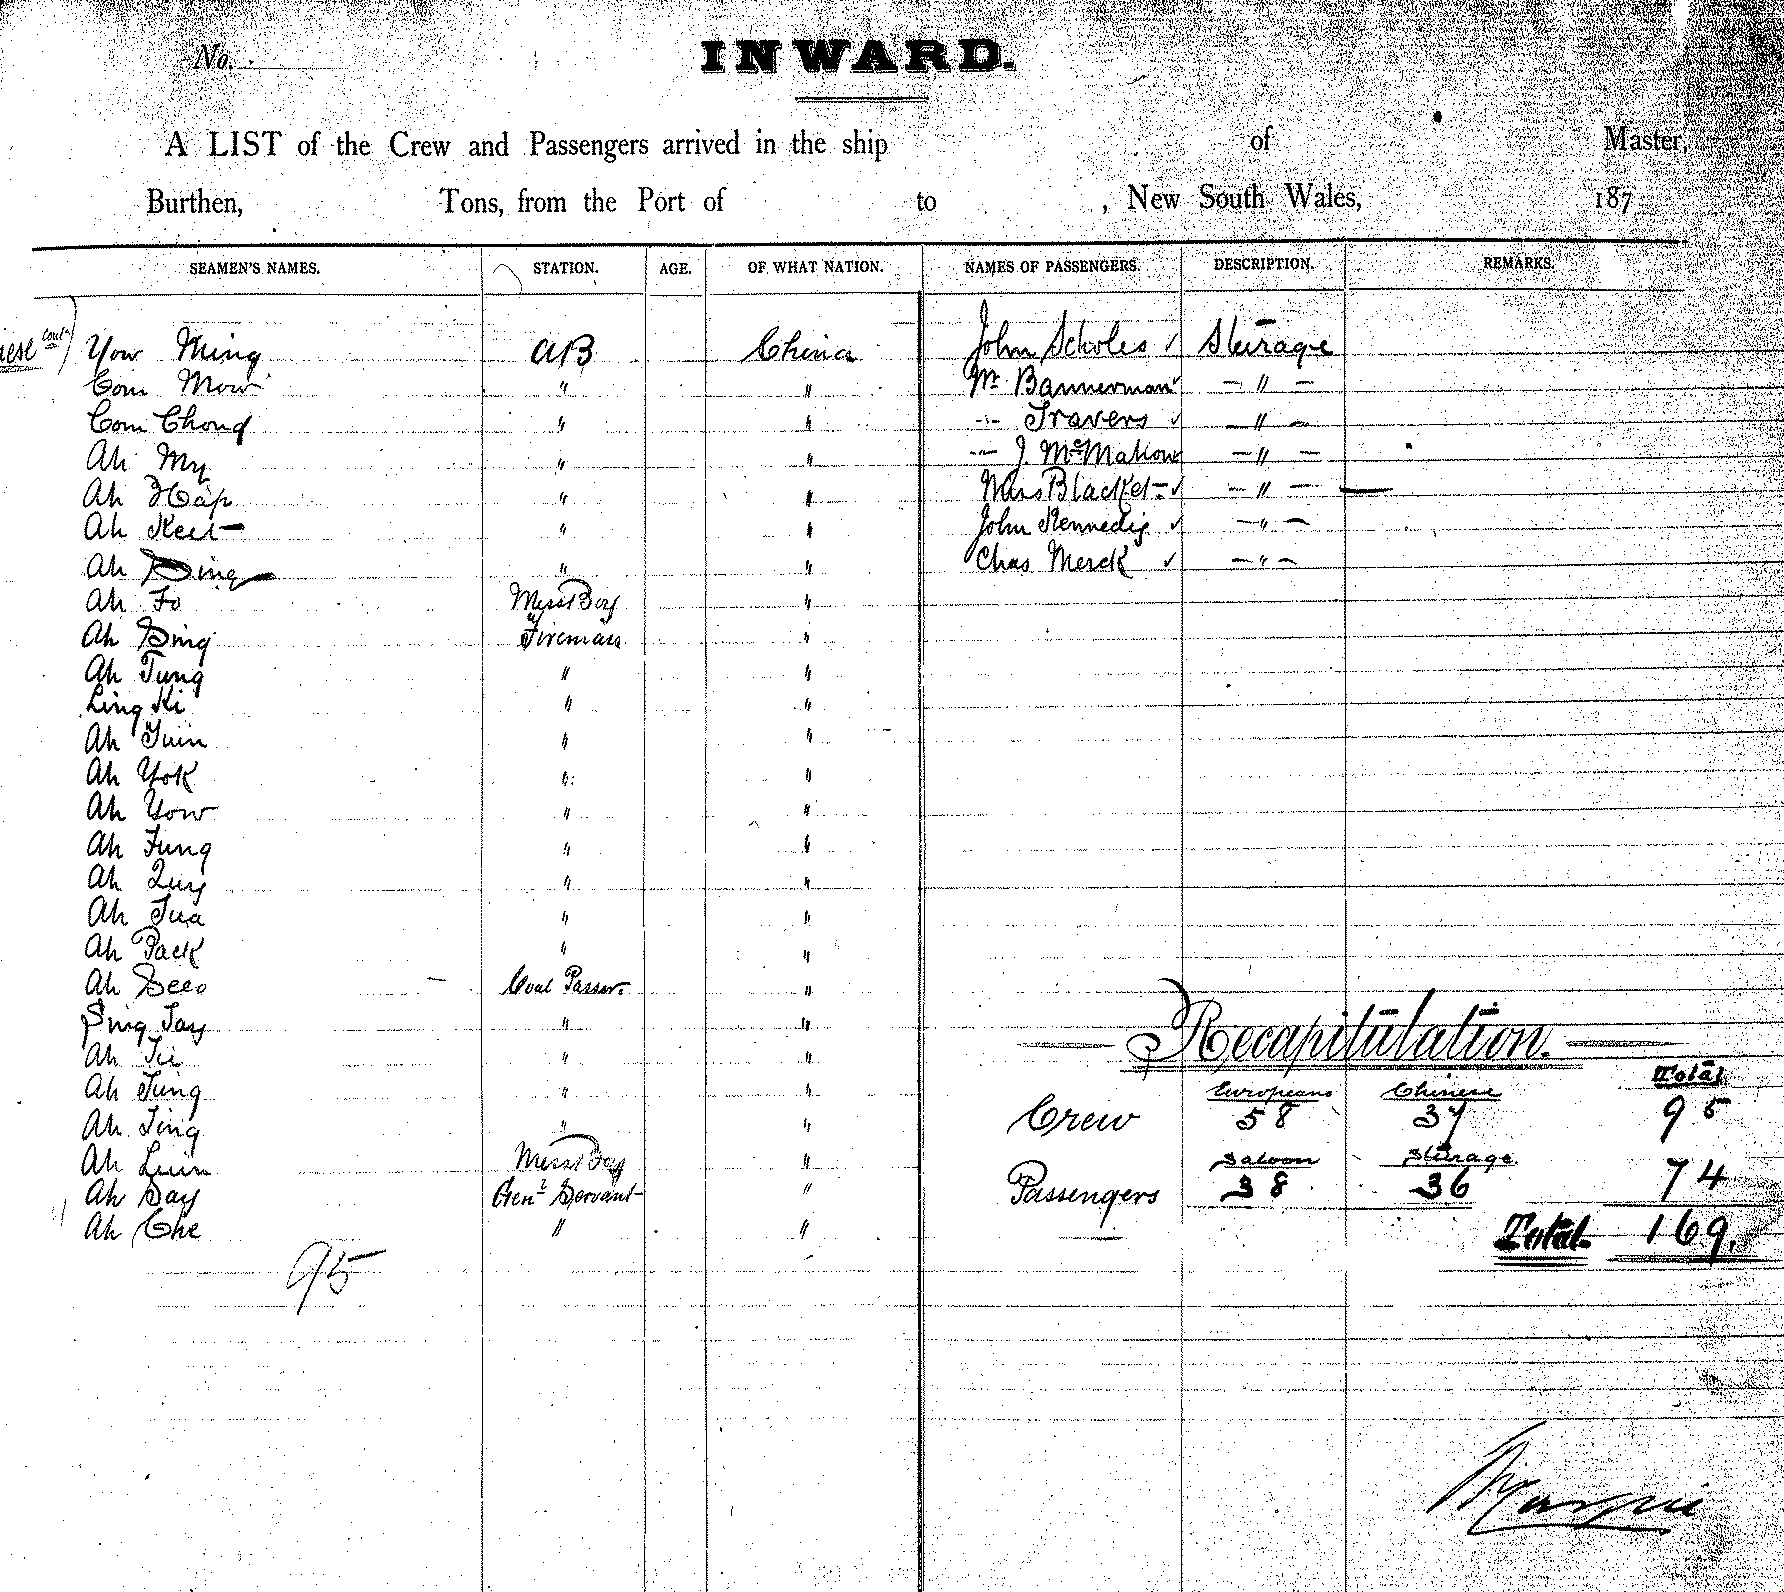 No.
INWARD.
A LIST of the Crew and Passengers arrived in the ship of Master,
Burthen, Tons, from the Port of to , New South Wales, 187
SEAMEN'S NAMES. STATION. AGE. OF WHAT NATION. NAMES OF PASSENGERS. DESCRIPTION. REMARKS.
Yow Ming AB China John Scholes ✓ Steerage
Com Mow " " Mr Bannerman ✓ — " —
Com Chong " " -"- Travers ✓ — " —
Ah My " " -"- J. McMahon ✓ — " —
Ah Hap " " Miss Blacket ✓ — " —
Ah Keet " " John Kennedy ✓ — " —
Ah Sing " " Chas Merck ✓ — " —
Ah Fo Mess Boy "
Ah Sing Fireman "
Ah Tung " "
Ling Ki " "
Ah " "
Ah Yok " "
Ah Yow " "
Ah Fung " "
Ah Quy " "
Ah " "
Ah Pack " "
Ah Coal Passer "
Sing Tay " "
Recapitulation.
Ah " "
Total
Ah Tung " "
Europeans Chinese
Crew 58 37 95
Ah " "
Saloon Steerage
Ah Mess Boy "
Passengers 38 36 74
Ah Say Genl Servant "
Ah Che " "
Total 169.
95